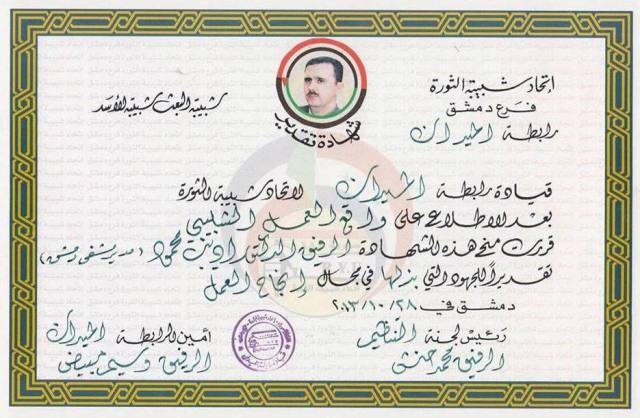 إتحاد شبيبة الثورة
فرع دمشق
رابطة الميدان
شبيبة البعث شبيبة الأسد
شهادة تقدير
قيادة رابطة الميدان لاتحاد شبيبة الثورة
بعد الاطلاع على واقع العمل الشبيبي
قررت منح هذه الشهادة الرفيق الدكتور أديب محمود (مدير مشفى دمشق)
تقديراً للجهود التي بذلها في مجال إنجاح العمل
دمشق في ٢٨/١٠/٢٠١٣
رئيس لجنة التنظيم
الرفيق محمد حنش
أمين الرابطة الميدان
الرفيق وسيم مبيض